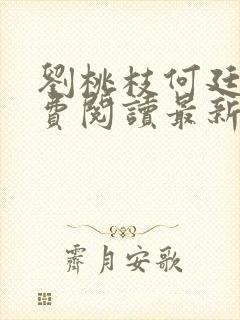 劉桃枝何廷
費閱讀最新
霽月安歌